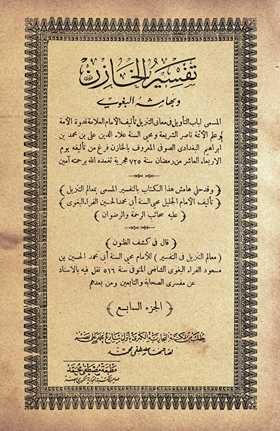 تفسير الخازن
وبهامشه البغوي
المسمى لباب التأويل في معاني التنزيل تأليف الامام العلامة قدوة الأمة
وعلم الأئمة ناصر الشريعة ومحيي السنة علاء الدين علي بن محمد بن
ابراهيم البغدادي الصوفي المعروف بالخازن فرغ من تأليفه يوم
الاربعاء العاشر من رمضان سنة ٧٢٥ هجرية تغمده الله برحمته آمين
وقد حلي هامش هذا الكتاب بالتفسير المسمى بمعالم التنزيل
تأليف الامام الجليل محيي السنة أبي محمد الحسين الفراء البغوي
عليه سحائب الرحمة والرضوان
﴿ قال في كشف الظنون ﴾
معالم التنزيل في التفسير ﴾ للامام محيي السنة أبي محمد الحسين بن
مسعود الفراء البغوي الشافعي المتوفى سنة ٥١٦ نقل فيه بالاسناد
عن مفسري الصحابة والتابعين ومن بعدهم
﴿ الجزء السابع ﴾
يطلب من المكتبة التجارية الكبرى بأول شارع محمد علي بمصر
لصاحبها مصطفى محمد
مطبعة مصطفى محمد